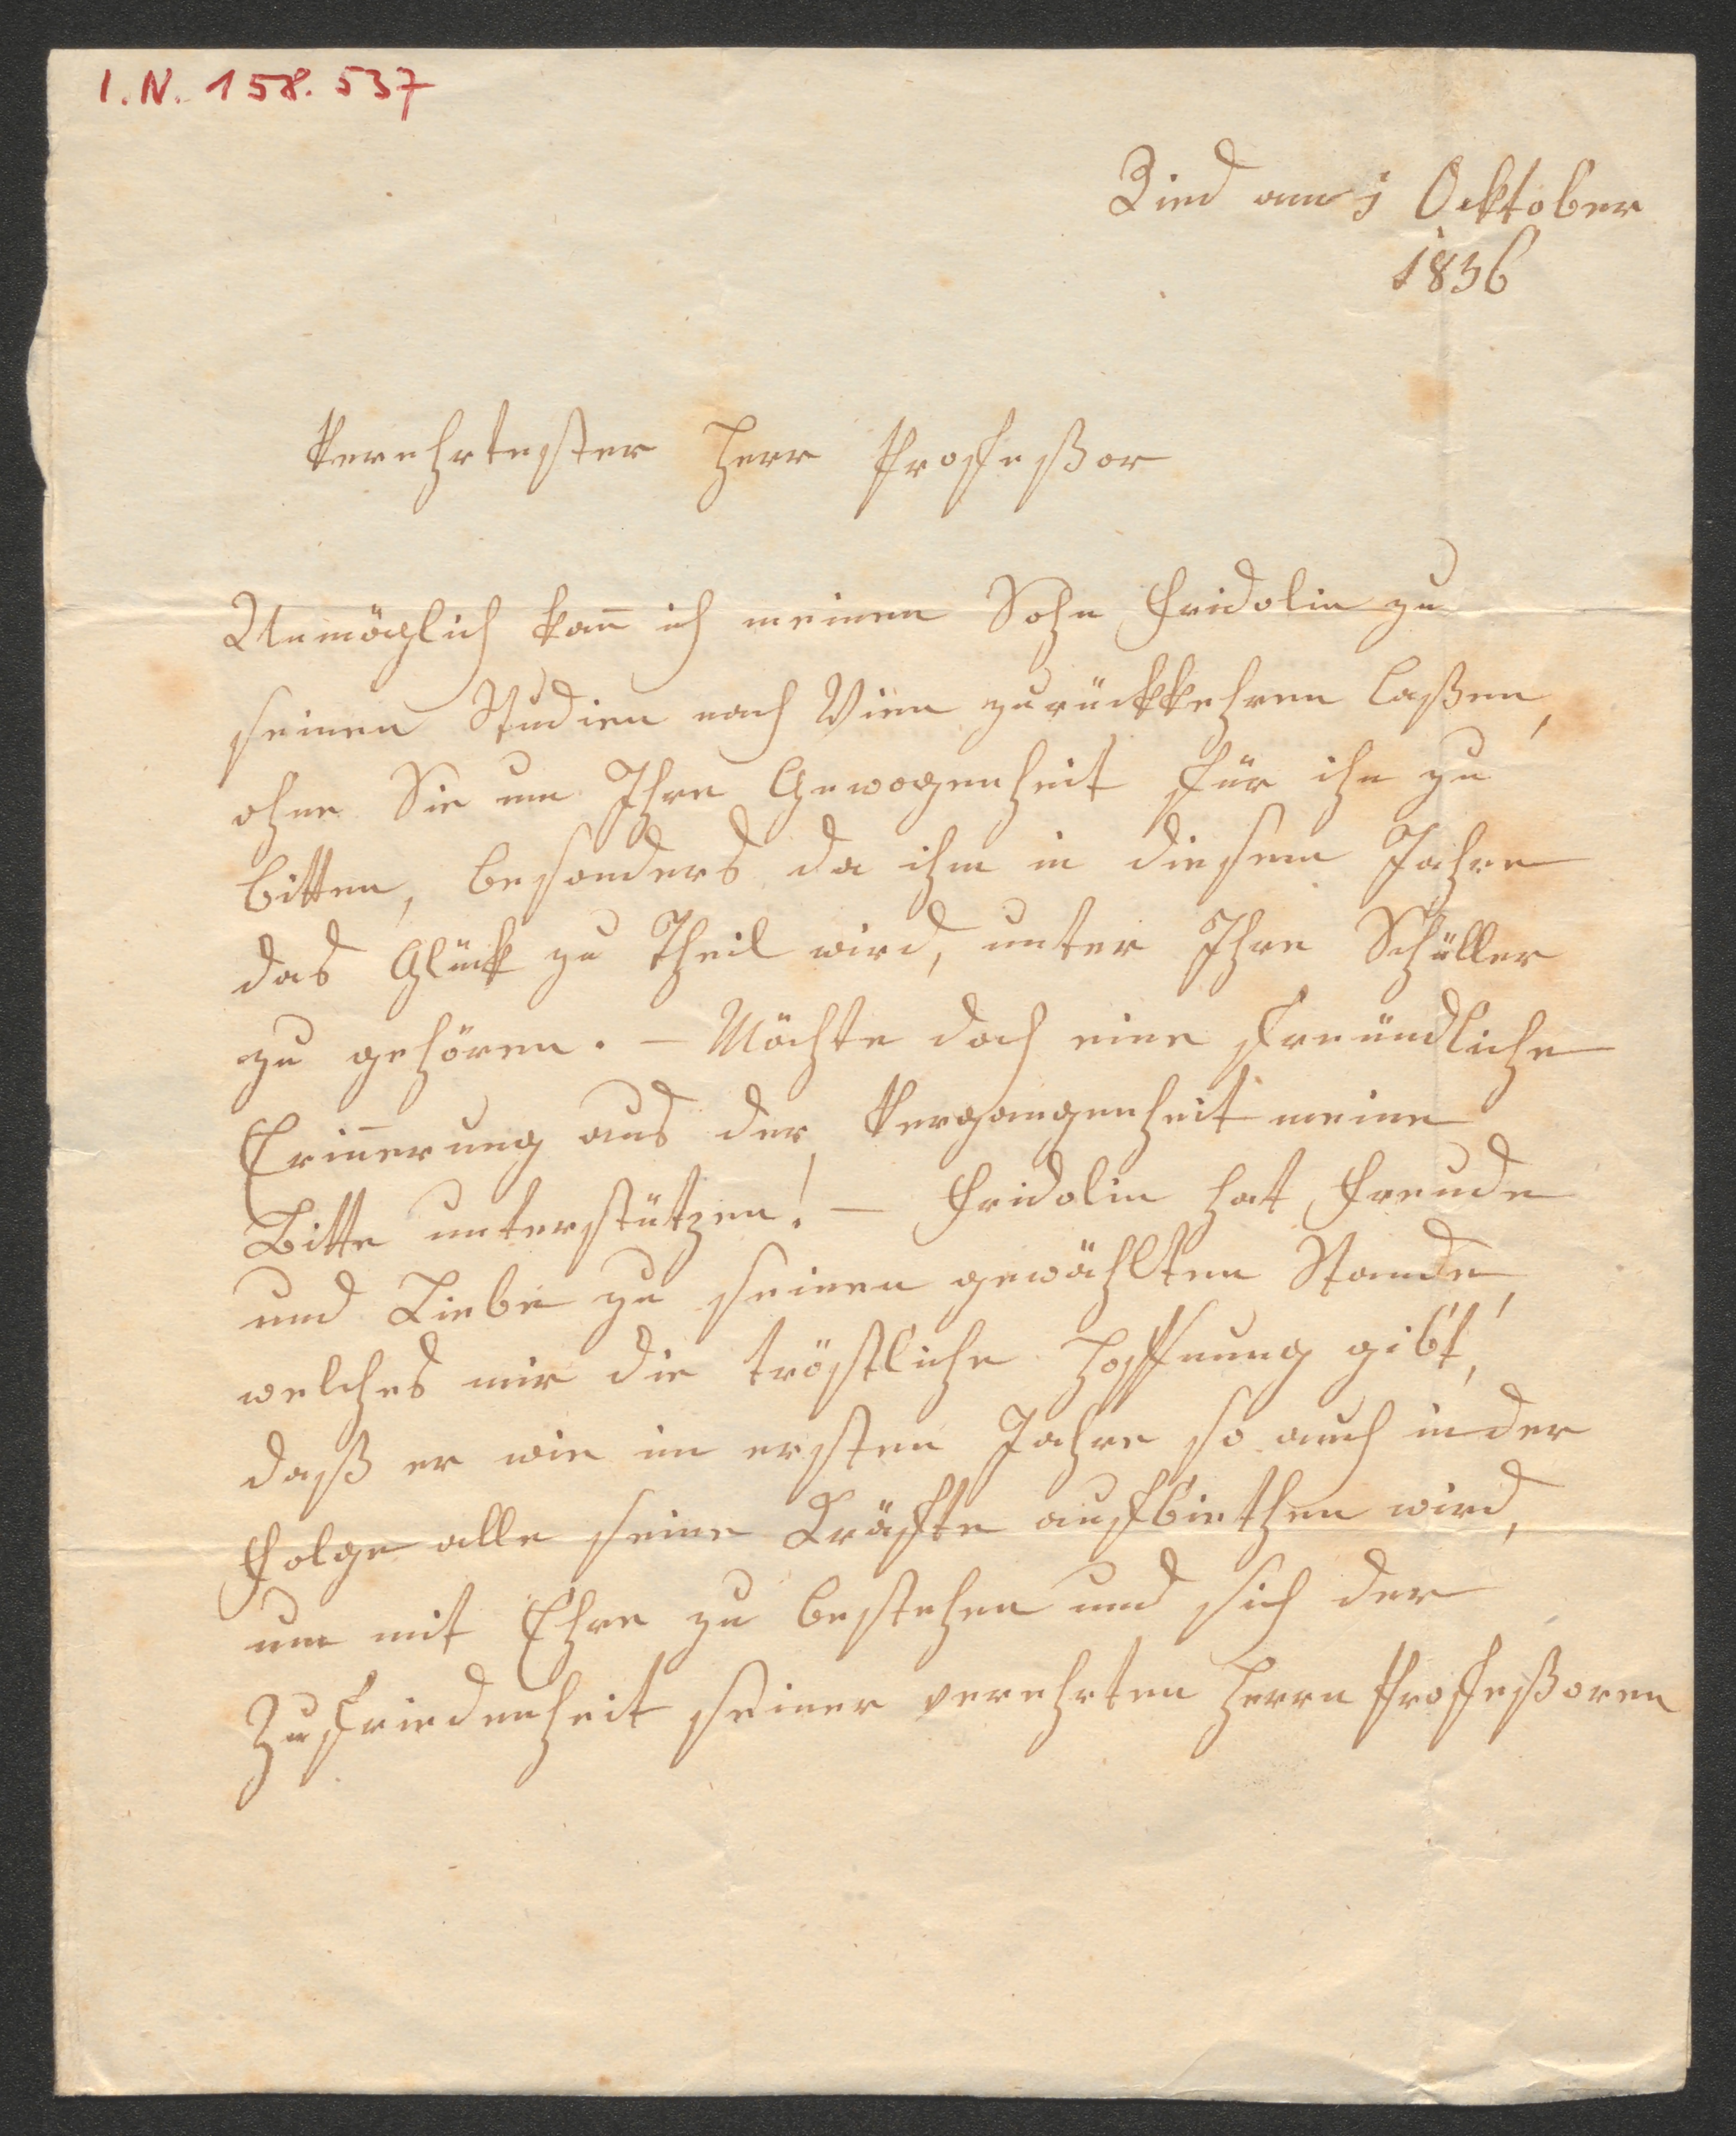 I.N. 158.537
Ried am 1 Ocktober
1836
Verehrtester Herr Profeßor
Unmöglich kan̄ ich meinen Sohn Fridolin zu
seinen Studien nach Wien zurückkehren laßen,
ohne Sie um Ihre Gewogenheit für ihn zu
bitten, besonders da ihm in diesem Jahre
das Glück zu Theil wird, unter Ihre Schüller
zu gehören. – Möchte doch eine freündliche
Erin̄erung aus der Vergangenheit meine
Bitte unterstützen! – Fridolin hat Freude
und Liebe zu seinen gewählten Stande,
welches mir die tröstliche Hoffnung gibt,
daß er wie im ersten Jahre so auch in der
Folge alle seine Kräfte aufbiethen wird,
um mit Ehre zu bestehen und sich der
Zufriedenheit seiner verehrten Herrn Profeßoren